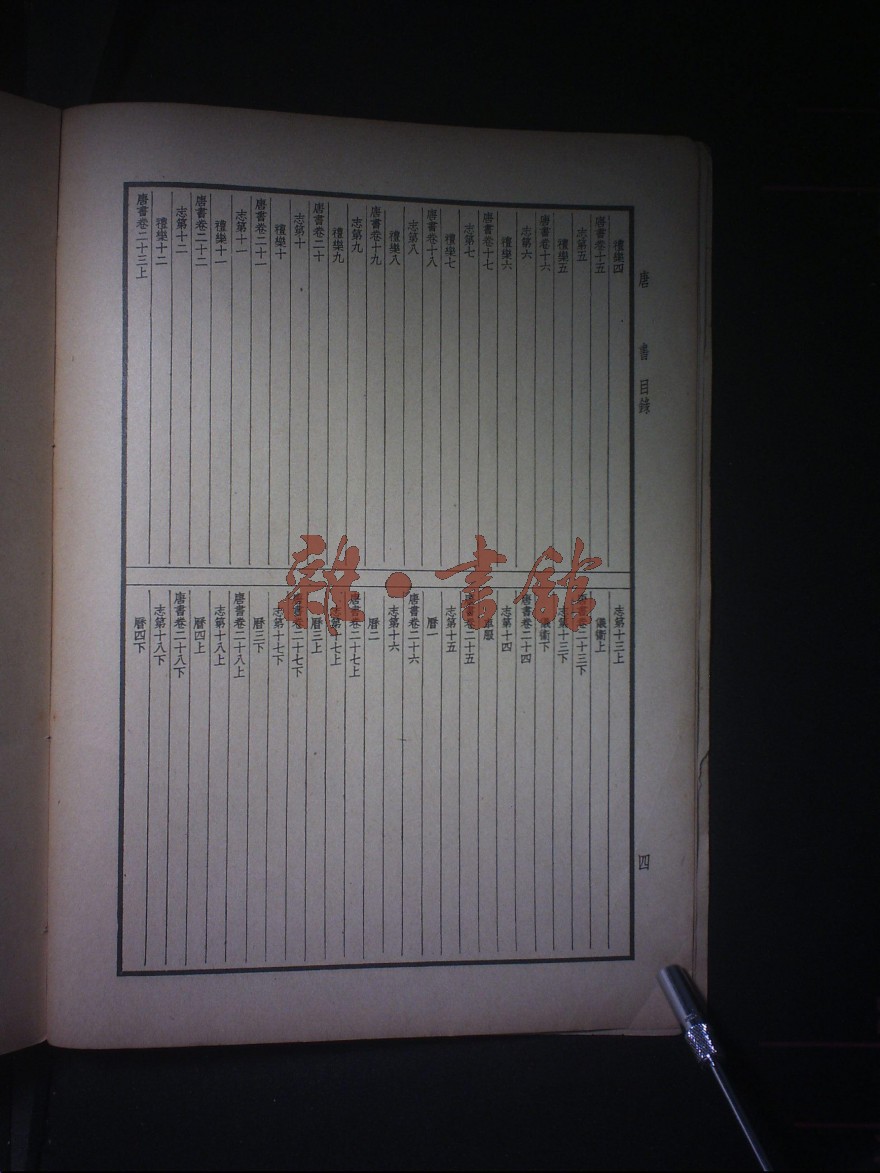 唐書目錄
四
禮樂四
唐書卷十五
志第五
禮樂五
唐書卷十六
志第六
禮樂六
唐書卷十七
志第七
禮樂七
唐書卷十八
志第八
禮樂八
唐書卷十九
志第九
禮樂九
唐書卷二十
志第十
禮樂十
唐書卷二十一
志第十一
禮樂十一
唐書卷二十二
志第十二
禮樂十二
唐書卷二十三上
志第十三上
儀衞上
唐書卷二十三下
志第十三下
儀衞下
唐書卷二十四
志第十四
車服
唐書卷二十五
志第十五
曆一
唐書卷二十六
志第十六
曆二
唐書卷二十七上
志第十七上
曆三上
唐書卷二十七下
志第十七下
曆三下
唐書卷二十八上
志第十八上
曆四上
唐書卷二十八下
志第十八下
曆四下
雜·書館